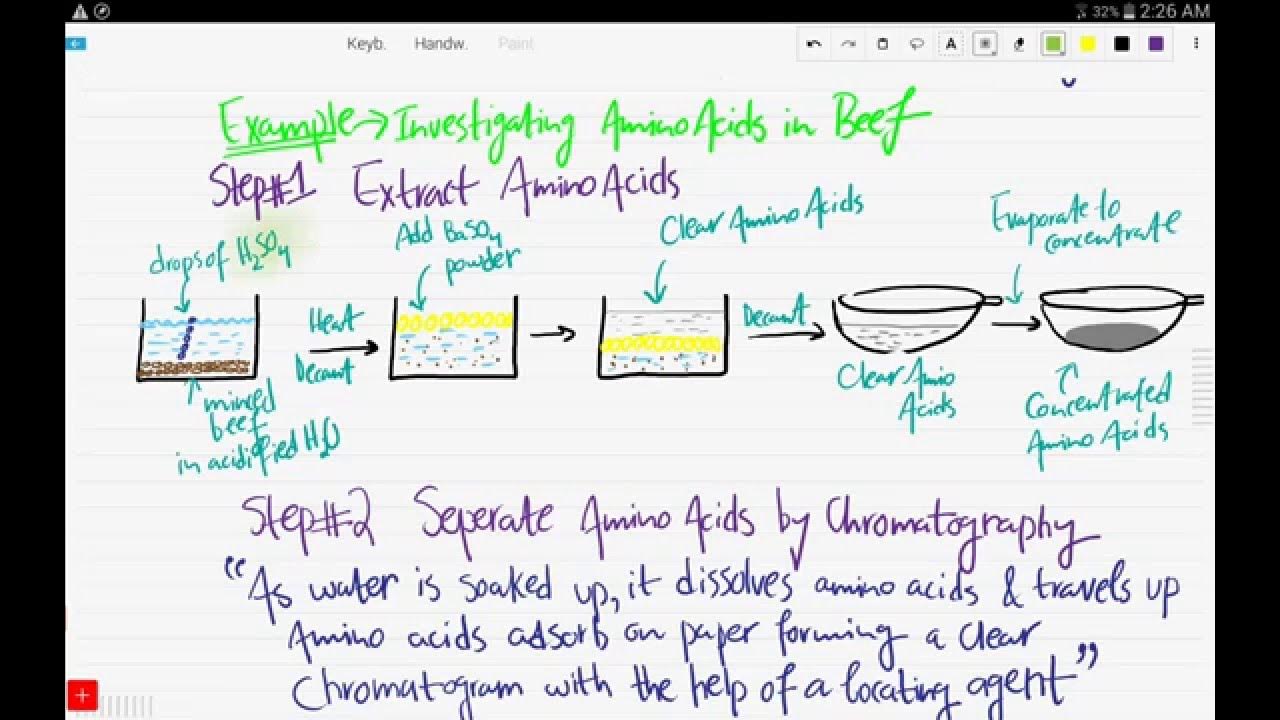 32% 2:26 AM
Keyb. Handw. Paint
A
Example → Investigating Amino Acids in Beef
Step#1 Extract Amino Acids
drops of H2SO4
Add BaSO4
powder
Clear Amino Acids
Evaporate to
concentrate
Heat
Decant
Decant
minced
beef
in acidified H2O
Clear Amino
Acids
Concentrated
Amino Acids
Step#2 Seperate Amino Acids by Chromatography
"As water is soaked up, it dissolves amino acids & travels up
Amino acids adsorb on paper forming a clear
Chromatogram with the help of a locating agent"